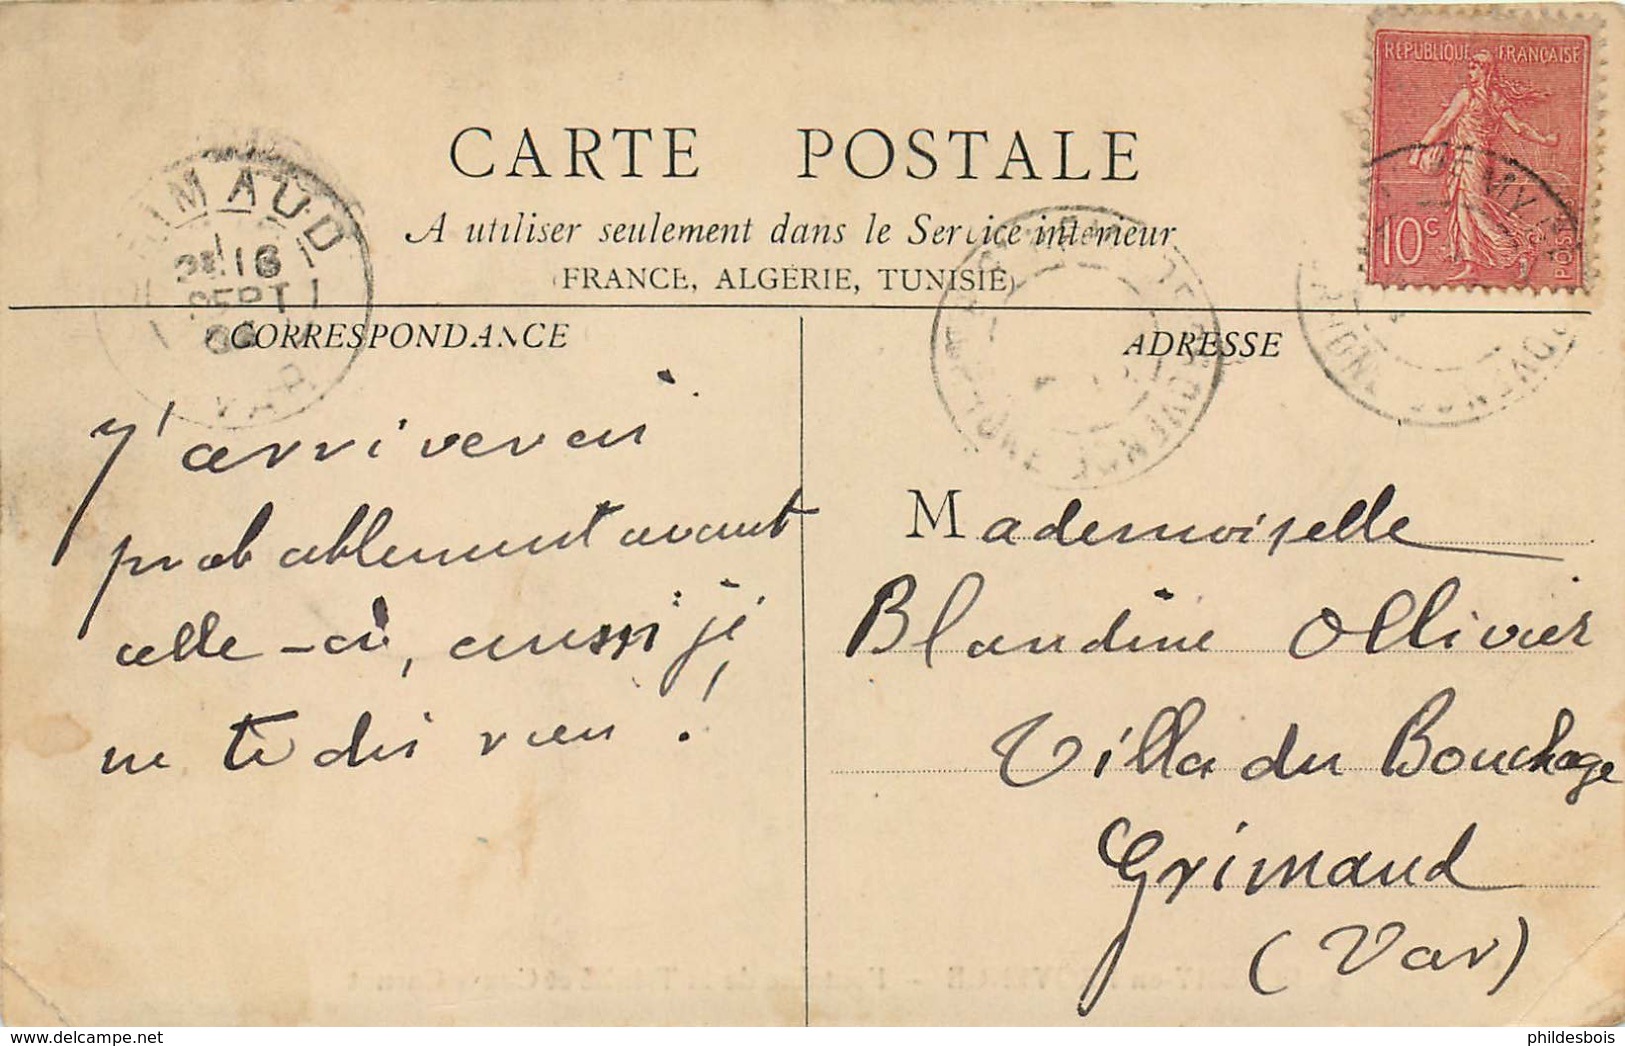 RÉPUBLIQUE FRANÇAISE
10c
POSTES
CARTE POSTALE
A utiliser seulement dans le Service intérieur
(FRANCE, ALGÉRIE, TUNISIE)
GRIMAUD
16
SEPT
VAR
CORRESPONDANCE
J'arriverai
probablement avant
celle-ci, aussi je
ne te dis rien !
ADRESSE
Mademoiselle
Blandine Ollivier
Villa du Bouchage
Grimaud
(Var)
www.delcampe.net
phildesbois